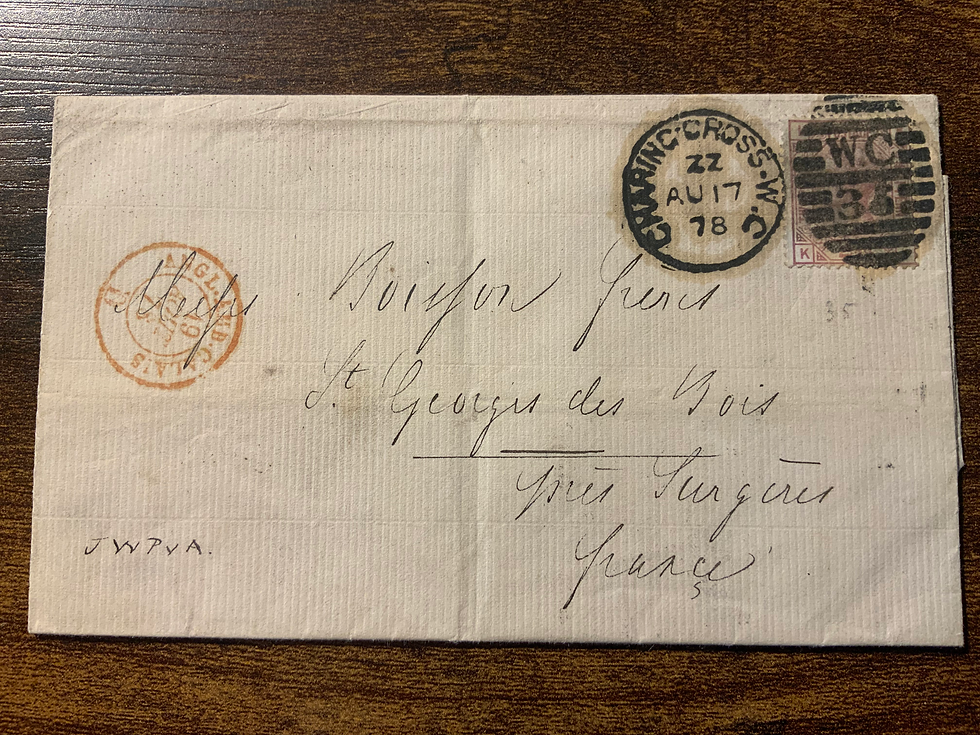 CHARING·CROSS·W.C.
ZZ
AU 17
78
W.C
K
ANGL. AMB. CALAIS
19
Messrs Boisson frères
35
St Georges des Bois
près Surgères
france
JWPVA.